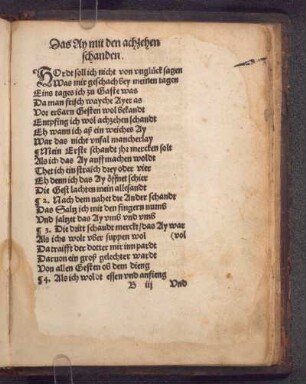 Das Ay mit den achzehen
schanden.
HOrdt soll ich nicht von vnglück sagen
Was mir geschach bey meinen tagen
Eins tages ich zu Gaste was
Da man frisch wayche Ayer as
Vor erbarn Gesten wol bekandt
Entpfing ich wol achzehen schandt
Eh wann ich aß ein weiches Ay
War das nicht vnfal mancherlay
¶ Mein Erste schandt jhr mercken solt
Als ich das Ay auffmachen woldt
Thet ich ein straich drey oder vier
Eh denn ich das Ay öffnet schier
Die Gest lachten mein allesandt
¶ 2. Nach dem nahet die Ander schandt
Das Saltz ich mit den fingern nums
Vnd saltzet das Ay vmb vnd vmb
¶ 3. Die drit schandt merckt/das Ay war
Als ichs wolt vber suppen vol (vol
Da traifft der dotter mir inn pardt
Daruon ein groß gelechter wardt
Von allen Gesten ob dem dieng
¶ 4. Als ich woldt essen vnd anfieng
B iij Vnd